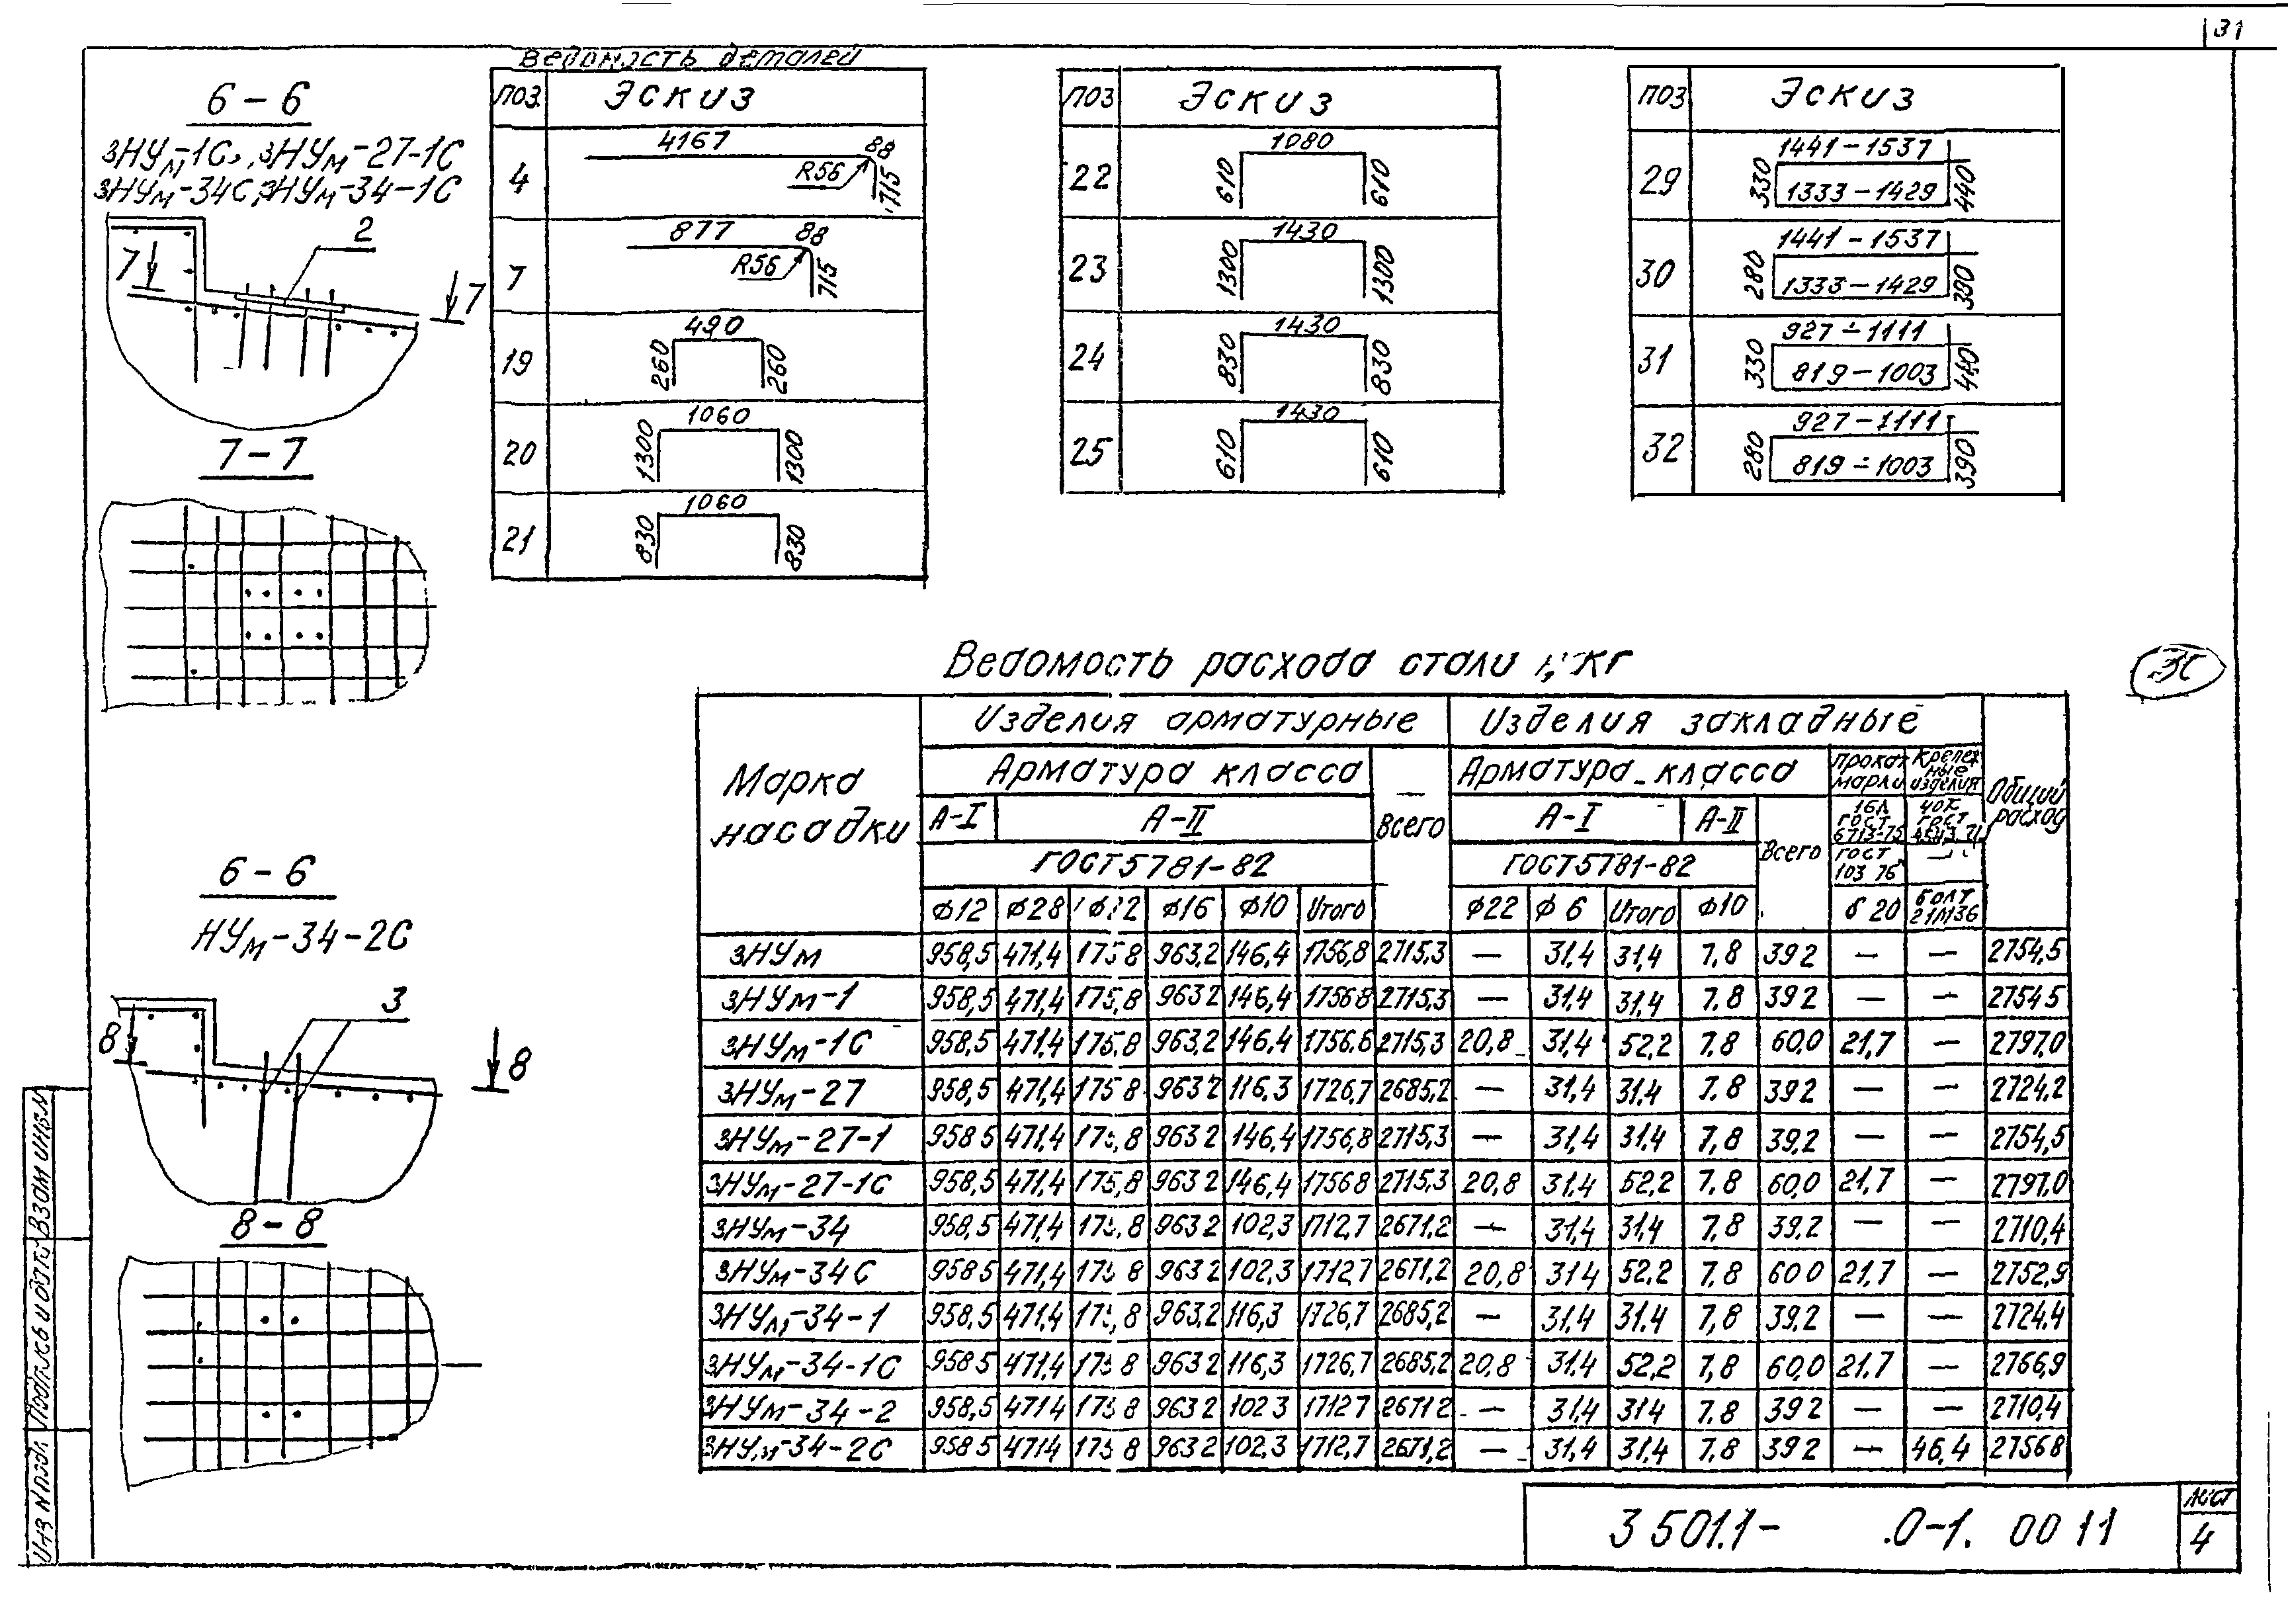 31
Ведомость деталей
6-6
3НУм-1С, 3НУм-27-1С
3НУм-34С, 3НУм-34-1С
2
7 7
7-7
6-6
НУм-34-2С
3
8 8
8-8
поз. Эскиз
4 4167 88 R56 715
7 877 88 R56 715
19 490 260 260
20 1060 1300 1300
21 1060 830 830
поз Эскиз
22 1080 610 610
23 1430 1300 1300
24 1430 830 830
25 1430 610 610
поз Эскиз
29 1441-1537 330 1333-1429 440
30 1441-1537 280 1333-1429 390
31 927÷1111 330 819-1003 440
32 927-1111 280 819÷1003 390
Ведомость расхода стали, кг
Марка насадки
Изделия арматурные Изделия закладные Общий расход
Арматура класса Всего Арматура класса Всего Прокат марки Крепежные изделия
А-I А-II А-I А-II 16Д ГОСТ 6713-75 40Х ГОСТ 4543-71
ГОСТ 5781-82 ГОСТ 5781-82 ГОСТ 103 76 —
ф12 ф28 ф22 ф16 ф10 Итого ф22 ф6 Итого ф10 δ20 болт 21М36
3НУм 958,5 471,4 175 8 963,2 146,4 1756,8 2715,3 — 31,4 31,4 7,8 39 2 — — 2754,5
3НУм-1 958,5 471,4 175,8 963 2 146,4 1756 8 2715,3 — 31,4 31,4 7.8 39 2 — — 2754 5
3НУм-1С 958,5 471,4 175,8 963,2 146,4 1756.8 2715,3 20,8 31,4 52,2 7,8 60,0 21,7 — 2797,0
3НУм-27 958,5 471,4 175 8 963 2 116,3 1726,7 2685,2 — 31,4 31,4 7.8 39 2 — — 2724,2
3НУм-27-1 958 5 471,4 175,8 963 2 146,4 1756,8 2715,3 — 31,4 31,4 7,8 39,2 — — 2754,5
3НУм-27-1С 958,5 471,4 175,8 963 2 146,4 1756 8 2715,3 20,8 31,4 52,2 7,8 60,0 21,7 — 2797,0
3НУм-34 958,5 471,4 175,8 963 2 102,3 1712,7 2671,2 — 31,4 31,4 7,8 39,2 — — 2710,4
3НУм-34С 958 5 471,4 175 8 963 2 102,3 1712 7 2671,2 20,8 31 4 52,2 7,8 60 0 21,7 — 2752,9
3НУм-34-1 958,5 471,4 175,8 963,2 116,3 1726,7 2685,2 — 31,4 31,4 7,8 39,2 — — 2724,4
3НУм-34-1С 958 5 471,4 175 8 963 2 116,3 1726,7 2685,2 20,8 31,4 52,2 7,8 60,0 21,7 — 2766,9
3НУм-34-2 958,5 471 4 175 8 963 2 102 3 1712 7 2671 2 — 31,4 31 4 7.8 39 2 — — 2710,4
3НУм-34-2С 958 5 471 4 175 8 963 2 102,3 1712,7 2671,2 — 31,4 31,4 7,8 39 2 — 46,4 2756 8
Инв N подл Подпись и дата Взам инв N
3 501.1- .0-1. 00 11
лист
4